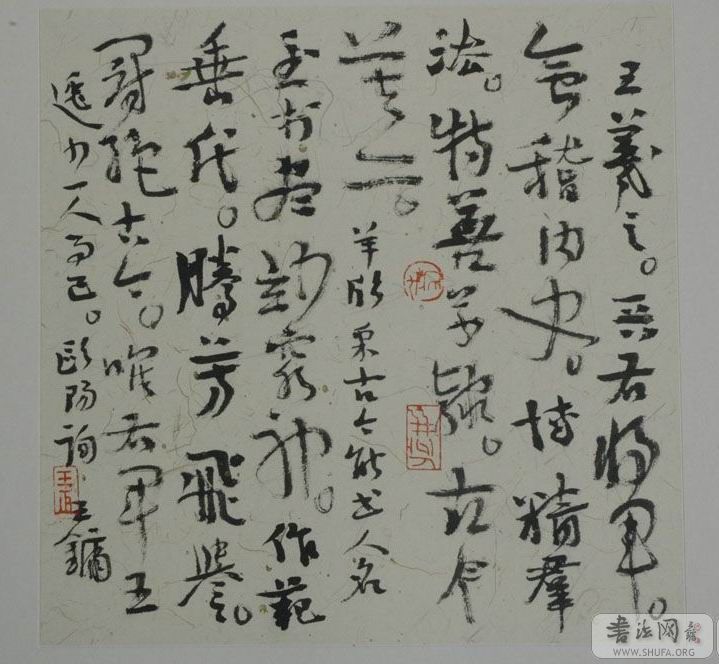 王羲之。晉右將軍。
會稽內史。博精羣
法。特善草隸。古今
莫二。羊欣采古今能書人名
至於盡妙窮神。作範
垂代。騰芳飛譽。
冠絕古今。唯右軍王
逸少一人而已。歐陽詢 王鏞
書法网
WWW.SHUFA.ORG